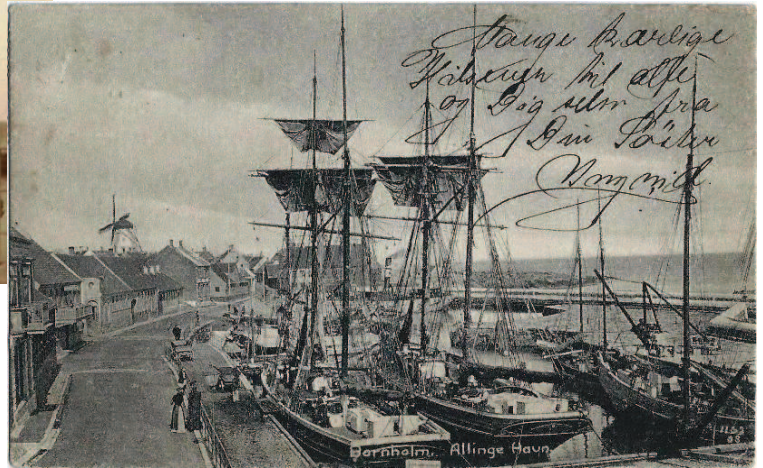 Mange kærlige
Hilsener til alle
og Dig selv fra
Din Søster
Yngvild.
Bornholm. Allinge Havn.
1162
08